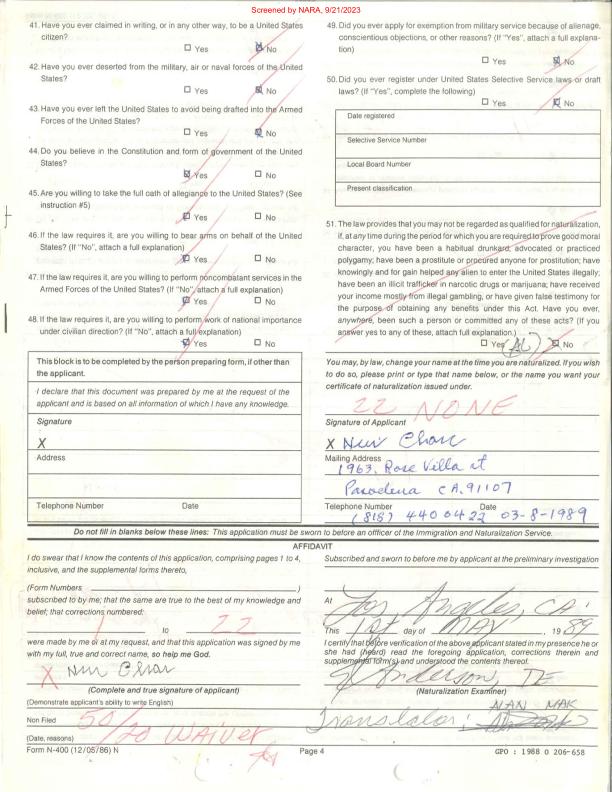 Screened by NARA, 9/21/2023
41. Have you ever claimed in writing, or in any other way, to be a United States
citizen?
☐ Yes ☒ No
42. Have you ever deserted from the military, air or naval forces of the United
States?
☐ Yes ☒ No
43. Have you ever left the United States to avoid being drafted into the Armed
Forces of the United States?
☐ Yes ☒ No
44. Do you believe in the Constitution and form of government of the United
States?
☒ Yes ☐ No
45. Are you willing to take the full oath of allegiance to the United States? (See
instruction #5)
☒ Yes ☐ No
46. If the law requires it, are you willing to bear arms on behalf of the United
States? (If "No", attach a full explanation)
☒ Yes ☐ No
47. If the law requires it, are you willing to perform noncombatant services in the
Armed Forces of the United States? (If "No", attach a full explanation)
☒ Yes ☐ No
48. If the law requires it, are you willing to perform work of national importance
under civilian direction? (If "No", attach a full explanation)
☒ Yes ☐ No
This block is to be completed by the person preparing form, if other than
the applicant.
I declare that this document was prepared by me at the request of the
applicant and is based on all information of which I have any knowledge.
Signature
X
Address
Telephone Number Date
49. Did you ever apply for exemption from military service because of alienage,
conscientious objections, or other reasons? (If "Yes", attach a full explana-
tion)
☐ Yes ☒ No
50. Did you ever register under United States Selective Service laws or draft
laws? (If "Yes", complete the following)
☐ Yes ☒ No
Date registered
Selective Service Number
Local Board Number
Present classification
51. The law provides that you may not be regarded as qualified for naturalization,
if, at any time during the period for which you are required to prove good moral
character, you have been a habitual drunkard; advocated or practiced
polygamy; have been a prostitute or procured anyone for prostitution; have
knowingly and for gain helped any alien to enter the United States illegally;
have been an illicit trafficker in narcotic drugs or marijuana; have received
your income mostly from illegal gambling, or have given false testimony for
the purpose of obtaining any benefits under this Act. Have you ever,
anywhere, been such a person or committed any of these acts? (If you
answer yes to any of these, attach full explanation.)
☐ Yes ☒ No
You may, by law, change your name at the time you are naturalized. If you wish
to do so, please print or type that name below, or the name you want your
certificate of naturalization issued under.
22 NONE
Signature of Applicant
X Nuv Chan
Mailing Address
1963. Rose Villa st
Pasadena CA. 91107
Telephone Number Date
(818) 440 0422 03-8-1989
Do not fill in blanks below these lines: This application must be sworn to before an officer of the Immigration and Naturalization Service.
AFFIDAVIT
I do swear that I know the contents of this application, comprising pages 1 to 4,
inclusive, and the supplemental forms thereto,
(Form Numbers )
subscribed to by me; that the same are true to the best of my knowledge and
belief; that corrections numbered:
1 to 22
were made by me or at my request, and that this application was signed by me
with my full, true and correct name, so help me God.
X Nuv Chan
(Complete and true signature of applicant)
(Demonstrate applicant's ability to write English)
Non Filed
50/20 WAIVER
(Date, reasons)
Form N-400 (12/05/86) N
Subscribed and sworn to before me by applicant at the preliminary investigation
At Los Angeles, CA.
This 1st day of MAY , 19 89
I certify that before verification of the above applicant stated in my presence he or
she had (heard) read the foregoing application, corrections therein and
supplemental form(s) and understood the contents thereof.
Anderson, TE
(Naturalization Examiner)
NAN MAK
Translator:
Page 4
GPO : 1988 O 206-658